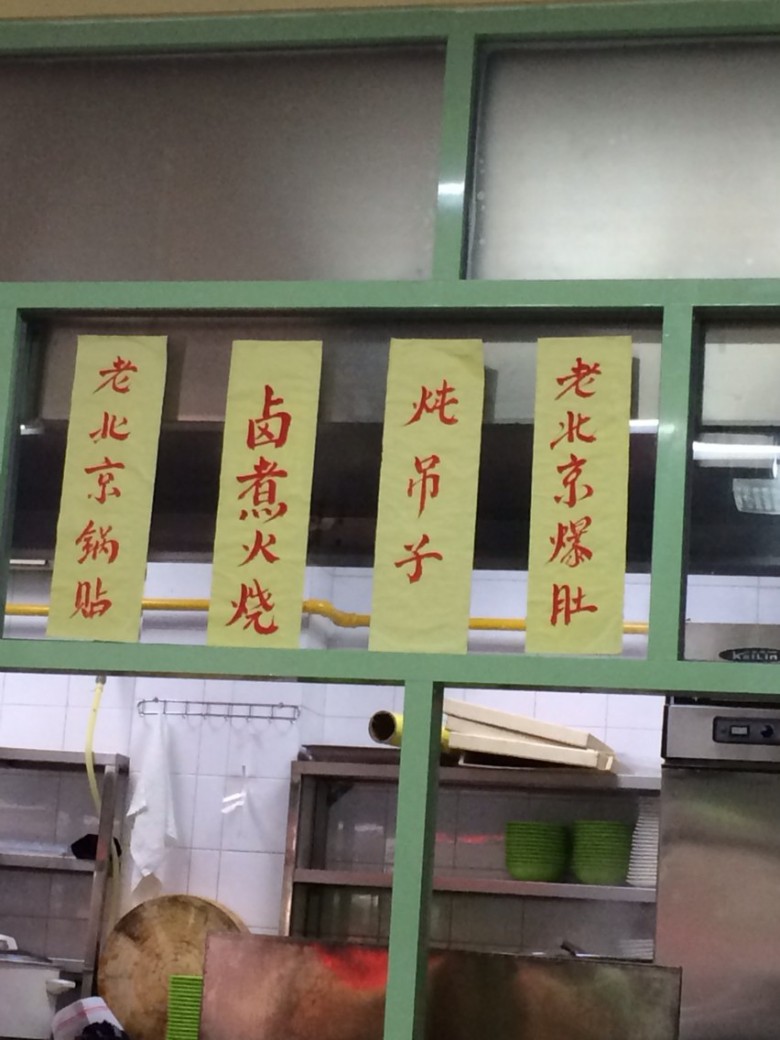 老北京锅贴
卤煮火烧
炖吊子
老北京爆肚